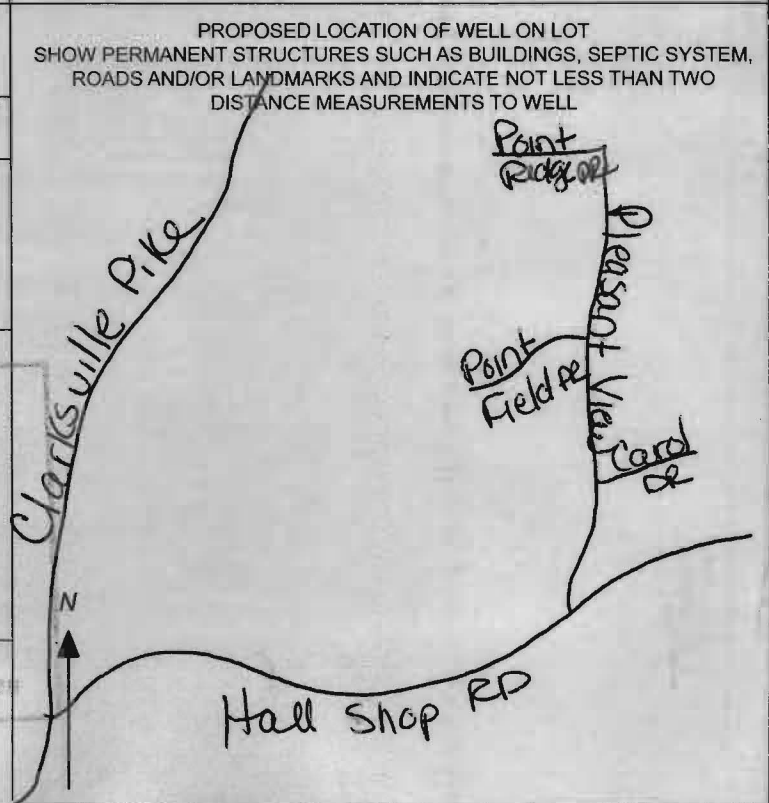 PROPOSED LOCATION OF WELL ON LOT
SHOW PERMANENT STRUCTURES SUCH AS BUILDINGS, SEPTIC SYSTEM,
ROADS AND/OR LANDMARKS AND INDICATE NOT LESS THAN TWO
DISTANCE MEASUREMENTS TO WELL
Point
Ridge DR
Pleasant View
Clarksville Pike
Point
Field DR
Carol
DR
N
Hall Shop RD